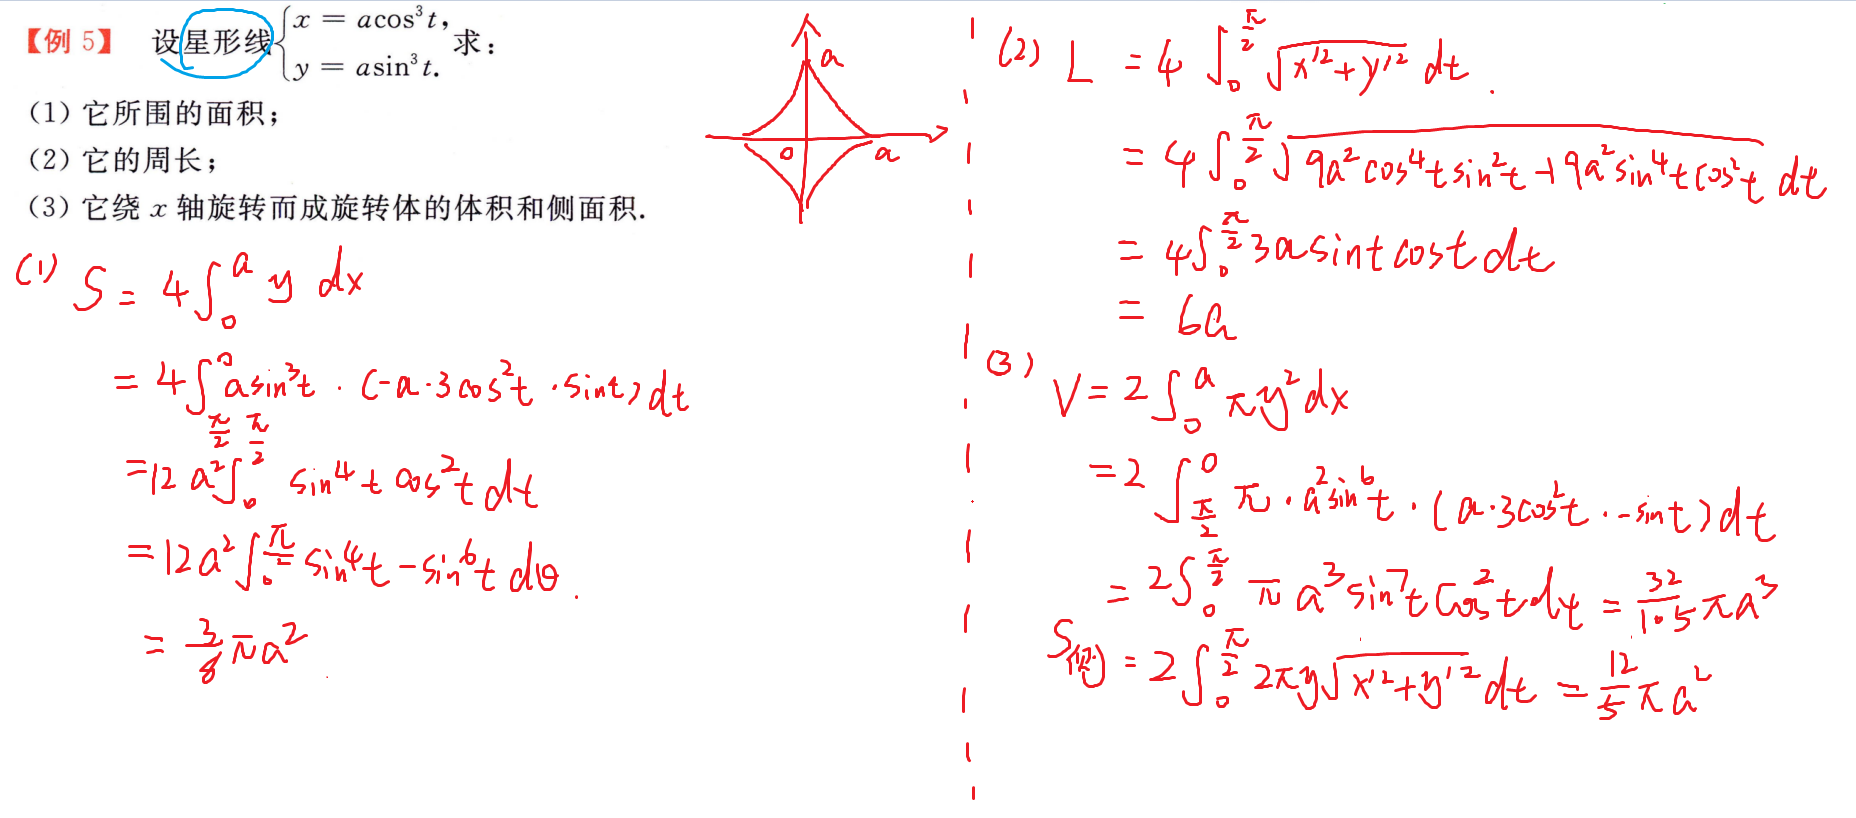 【例 5】 设星形线 { x = acos³t, y = asin³t. 求：
(1) 它所围的面积；
(2) 它的周长；
(3) 它绕 x 轴旋转而成旋转体的体积和侧面积.
a
0 a
(1) S = 4∫₀^a y dx
= 4∫_{π/2}^0 asin³t · (-a·3cos²t ·sint) dt
=12a²∫₀^{π/2} sin⁴t cos²t dt
=12a²∫₀^{π/2} sin⁴t - sin⁶t dθ.
= 3/8 πa²
(2) L = 4∫₀^{π/2} √(x'²+y'²) dt.
= 4∫₀^{π/2} √(9a²cos⁴tsin²t+9a²sin⁴tcos²t) dt
= 4∫₀^{π/2} 3asintcostdt
= 6a
(3) V = 2∫₀^a πy²dx
= 2∫_{π/2}^0 π·a²sin⁶t·(a·3cos²t·-sint)dt
= 2∫₀^{π/2} πa³sin⁷tcos²tdt = 32/105 πa³
S侧 = 2∫₀^{π/2} 2πy√(x'²+y'²) dt = 12/5 πa²